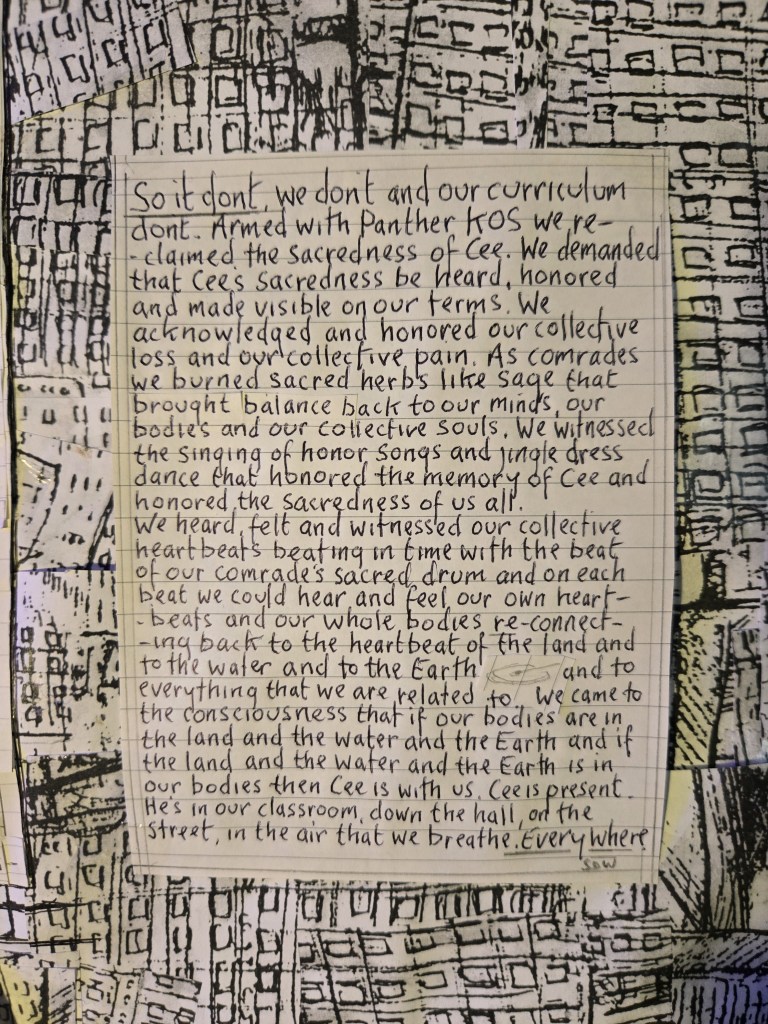 So it dont, we dont and our curriculum
dont. Armed with Panther KOS we re-
-claimed the sacredness of Cee. We demanded
that Cee's sacredness be heard, honored
and made visible on our terms. We
acknowledged and honored our collective
loss and our collective pain. As comrades
we burned sacred herbs like sage that
brought balance back to our minds, our
bodies and our collective souls. We witnessed
the singing of honor songs and jingle dress
dance that honored the memory of Cee and
honored the sacredness of us all.
We heard, felt and witnessed our collective
heartbeats beating in time with the beat
of our comrade's sacred drum and on each
beat we could hear and feel our own heart-
-beats and our whole bodies re-connect-
-ing back to the heartbeat of the land and
to the water and to the Earth and to
everything that we are related to. We came to
the consciousness that if our bodies are in
the land and the water and the Earth and if
the land and the water and the Earth is in
our bodies then Cee is with us. Cee is present.
He's in our classroom, down the hall, on the
street, in the air that we breathe. Every Where
SDW